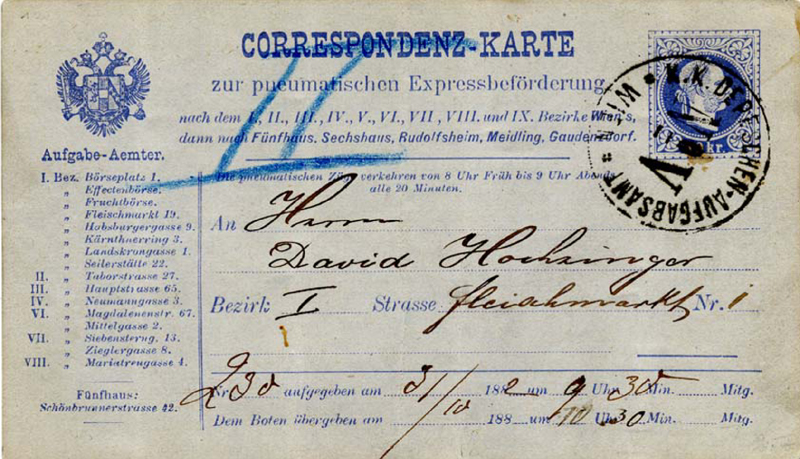 CORRESPONDENZ-KARTE
zur pneumatischen Expressbeförderung
nach dem I., II., III., IV., V., VI., VII, VIII. und IX. Bezirke Wien's,
dann nach Fünfhaus, Sechshaus, Rudolfsheim, Meidling, Gaudendorf.
Die pneumatischen Züge verkehren von 8 Uhr Früh bis 9 Uhr Abends
alle 20 Minuten.
kr.
K.K. DEPESCHEN-AUFGABSAMT WIEN
Aufgabe-Aemter.
I. Bez. Börseplatz 1.
„ Effectenbörse.
„ Fruchtbörse.
„ Fleischmarkt 19.
„ Habsburgergasse 9.
„ Kärnthnerring 3.
„ Landskrongasse 1.
„ Seilerstätte 22.
II. „ Taborstrasse 27.
III. „ Hauptstrasse 65.
IV. „ Neumanngasse 3.
VI. „ Magdalenenstr. 67.
„ Mittelgasse 2.
VII. „ Siebensterng. 13.
„ Zieglergasse 8.
VIII. „ Mariatreugasse 4.
Fünfhaus:
Schönbrunnerstrasse 42.
An Herrn
David Hochsinger
Bezirk I Strasse Fleischmarkt Nr. 1
Nr. 230 aufgegeben am 31/10 1882 um 9 Uhr 30 Min. Mitg.
Dem Boten übergeben am 188 um Uhr 30 Min. Mitg.